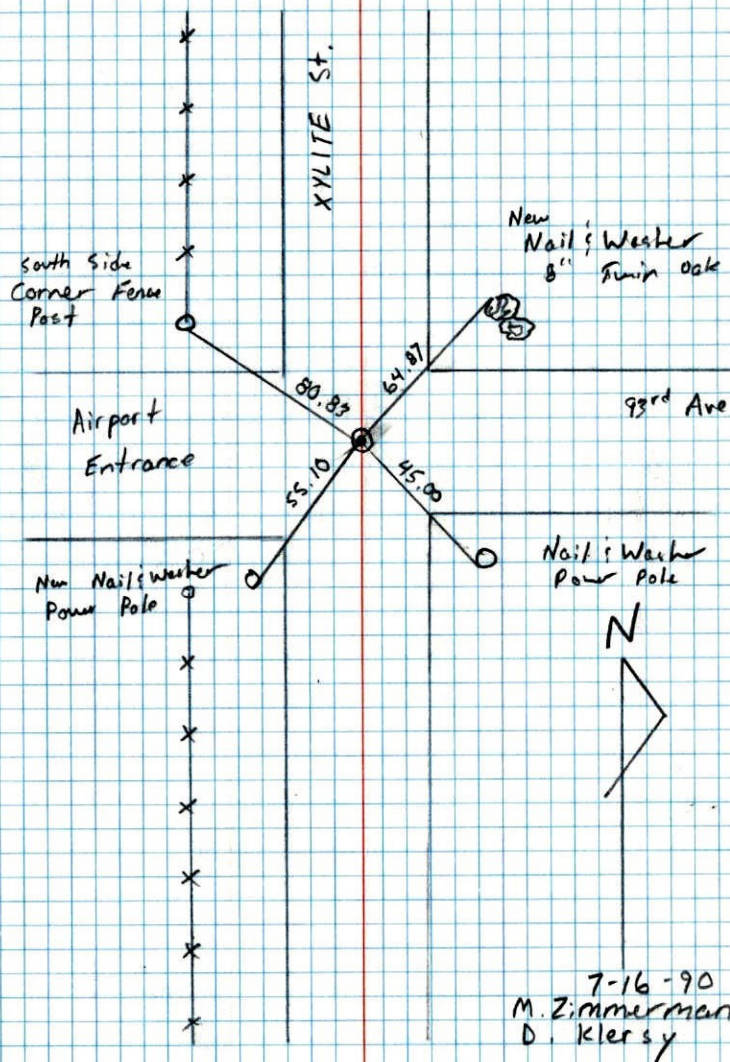 XYLITE St.
New
Nail & Washer
8" Twin Oak
South Side
Corner Fence
Post
80.83
64.87
93rd Ave
Airport
Entrance
55.10
45.00
New Nail & Washer
Power Pole
Nail & Washer
Power Pole
N
7-16-90
M. Zimmerman
D. Klersy